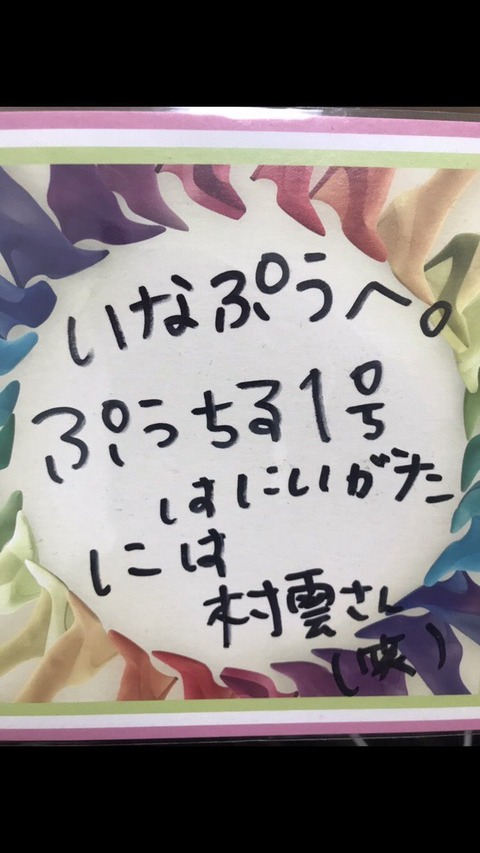 いなぷうへ。
ぷぅちる1号
はにいがた
には
村雲さん
(笑)